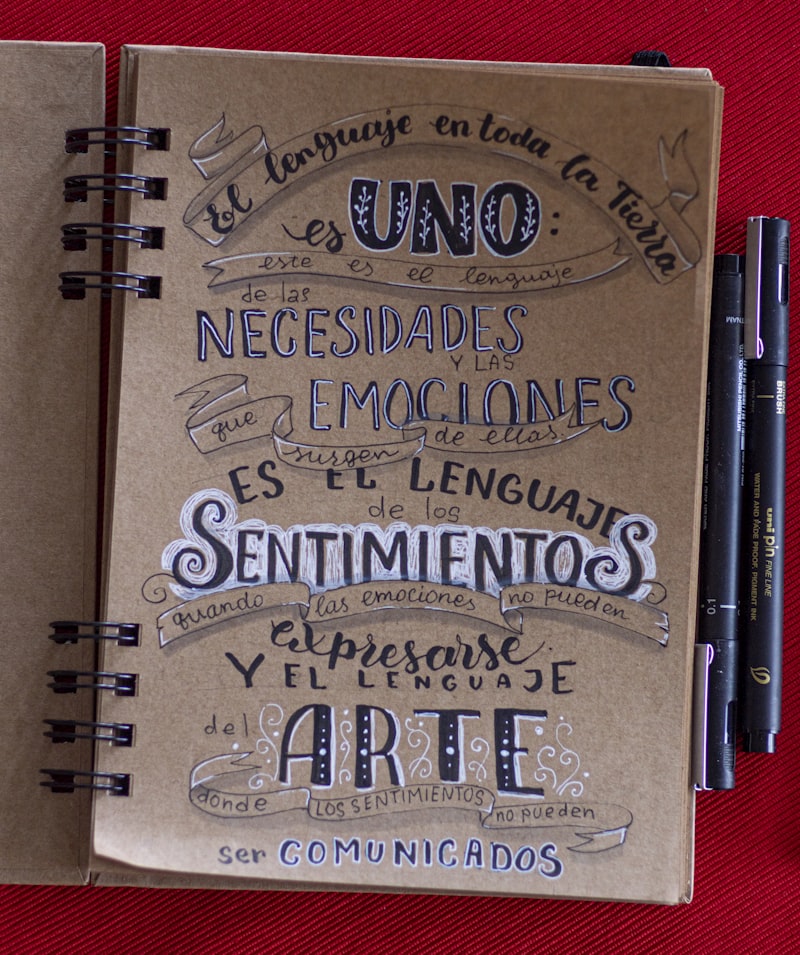 El lenguaje en toda la Tierra
es UNO:
este es el lenguaje
de las
NECESIDADES
Y LAS
EMOCIONES
que surgen de ellas.
ES EL LENGUAJE
de los
SENTIMIENTOS
quando las emociones no pueden
expresarse.
Y EL LENGUAJE
del
ARTE
donde LOS SENTIMIENTOS no pueden
ser COMUNICADOS
0.1
BRUSH
uni pin FINE LINE
WATER AND FADE PROOF, PIGMENT INK